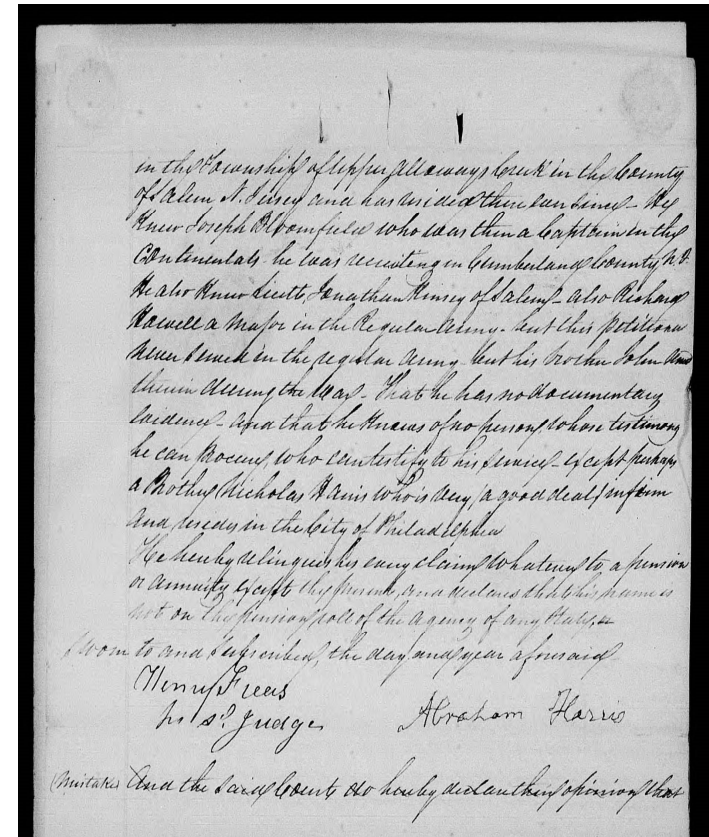 in the Township of upper alloways Creek in the County
of Salem N. Jersey and has resided there ever since - He
Knew Joseph Bloomfield who was then a Captain in the
Continentals he was recruiting in Cumberland County N.J.
He also Knew Lieutt. Jonathan Kinsey of Salem - also Richard
Howell a Major in the Regular army - but this petitioner
never served in the regular army - but his brother John did
therein during the War - That he has no documentary
evidence - and that he Knows of no person whose testimony
he can procure, who can testify to his service - except perhaps
a Brother Nicholas Harris who is very (a good deal) infirm
and resides in the City of Philadelphia
He hereby relinquishes every claim whatever to a pension
or annuity except the present, and declares that his name is
not on the pension roll of the agency of any State,
Sworn to and subscribed, the day and year aforesaid
Henry Freas
Judge Abraham Harris
(Mistake) And the said Court do hereby declare their opinion that